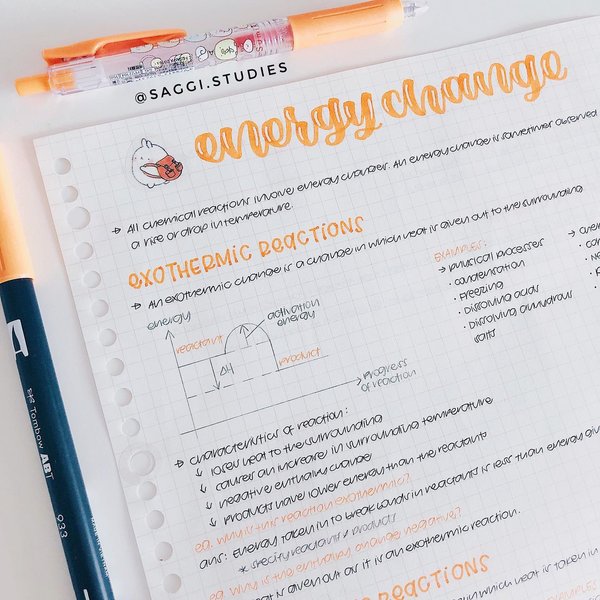 @SAGGI.STUDIES
energy change
→ All chemical reactions involve energy changes. An energy change is sometimes observed
a rise or drop in temperature.
EXOTHERMIC REACTIONS
→ An exothermic change is a change in which heat is given out to the surrounding.
energy
reactant
activation
energy
ΔH
product
progress
of reaction
EXAMPLES:
→ physical processes
• condensation
• Freezing
• Dissolving acids
• Dissolving anhydrous
salts
→ characteristics of reaction:
↳ loses heat to the surrounding
↳ causes an increase in surrounding temperature
↳ negative enthalpy change
↳ products have lower energy than the reactants
eg. Why is this reaction exothermic?
ans: Energy taken in to break bonds in reactants is less than energy
* specify reactants & products
eg. Why is the enthalpy change negative?
heat is given out as it is an exothermic reaction.
REACTIONS
in which heat is taken in
EXAMPLES
Tombow ABT
933